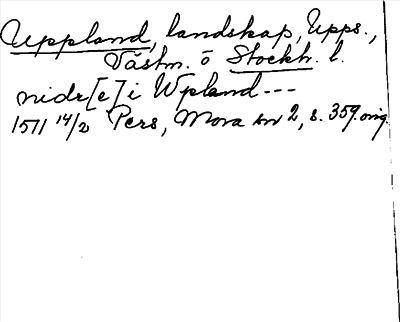 Uppland, landskap, Upps.,
Västm. o Stockh. l.
nidr[e] i Wpland ---
1511 14/2 Pers, Mora sn 2, s. 359. orig.